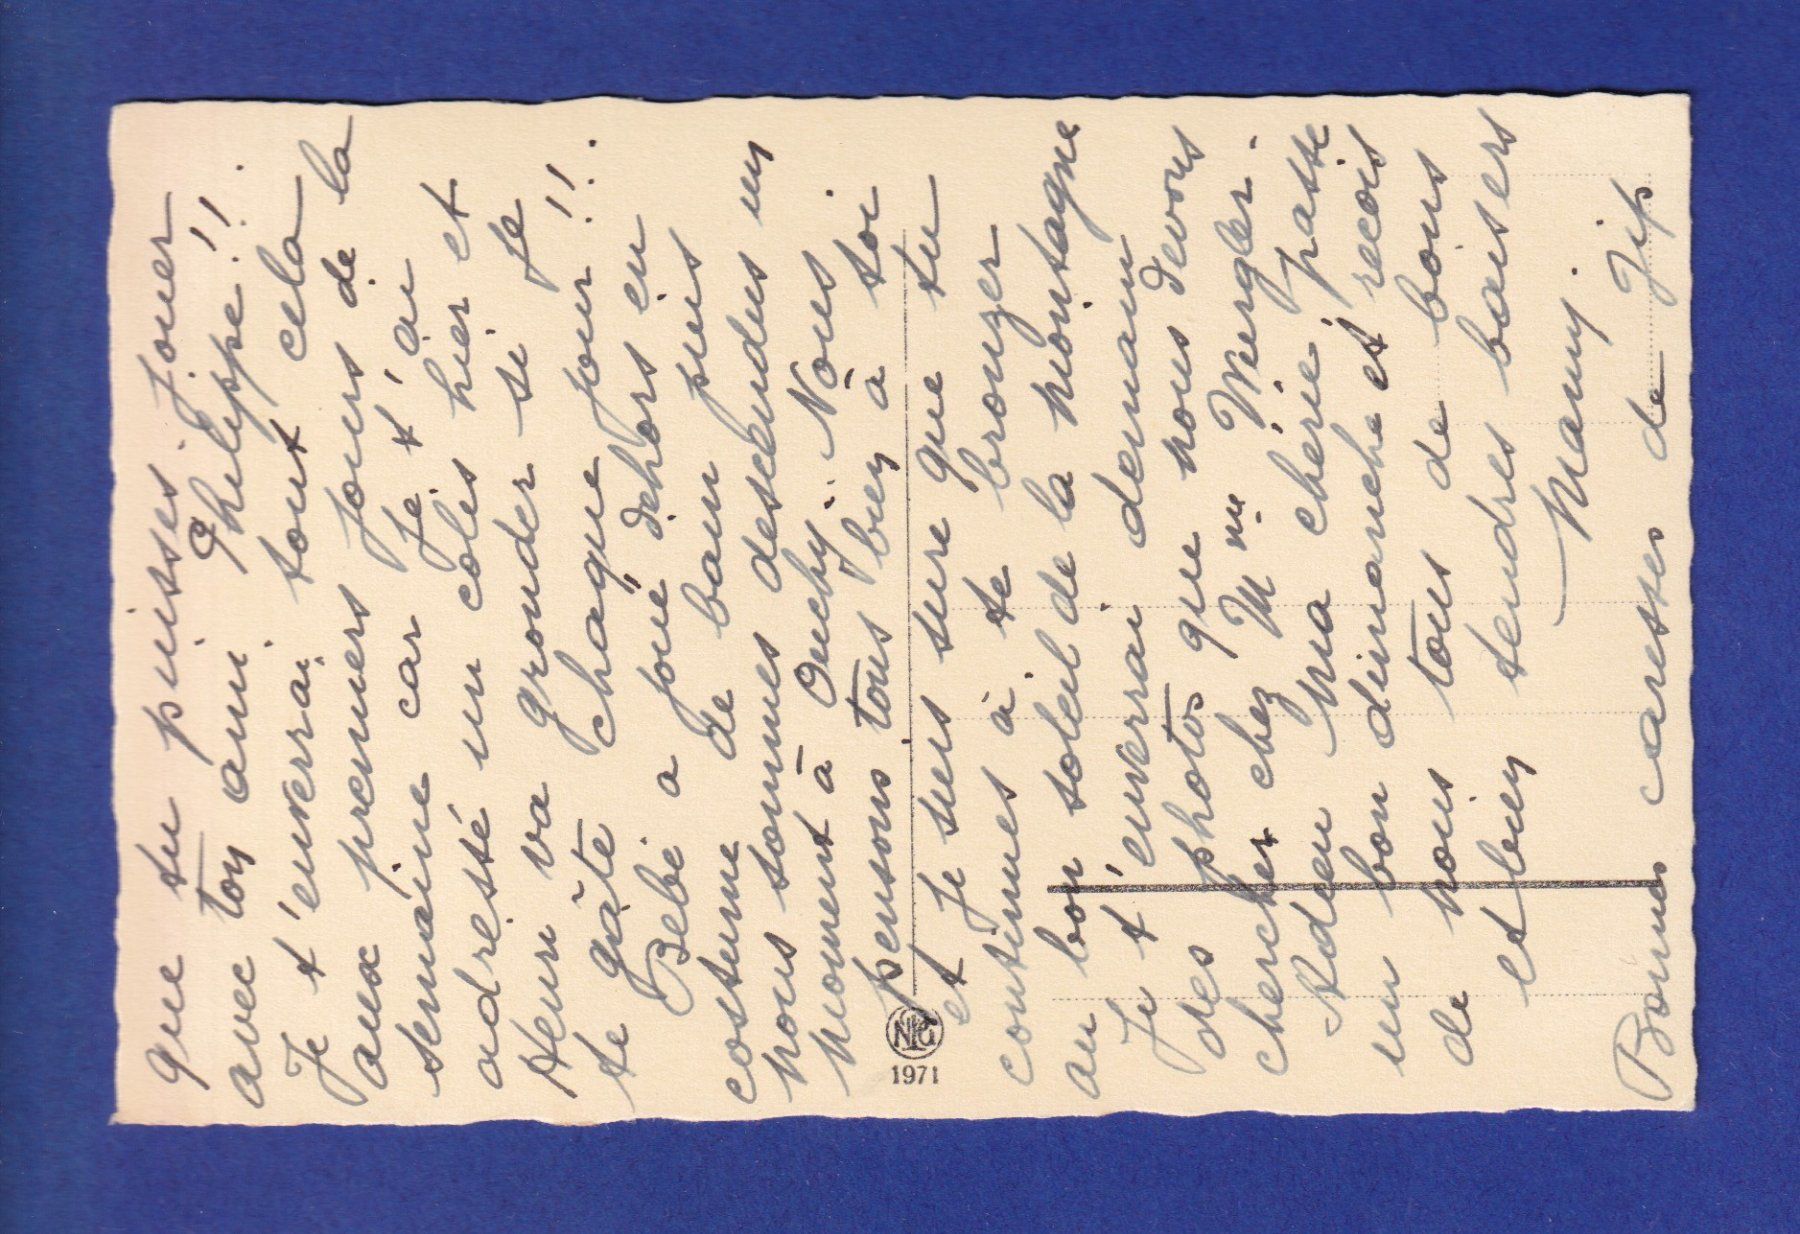 que tu puisses jouer
avec ton ami Philippe!!.
Je t'enverrai tout cela
aux premiers jours de la
semaine car je t'ai
adressé un colis hier et
Henri va gronder si je
te gâte chaque jour!!.
Bébé a joué dehors en
costume de bain puis
nous sommes descendus un
moment à Ouchy. Nous
pensons tous bien à toi
et je suis sure que tu
continues à te bronzer
au bon soleil de la montagne
Je t'enverrai demain
des photos que nous devons
chercher chez Mme Mengler.
Adieu ma chérie passe
un bon dimanche et recois
de nous tous de bons
et bien tendres baisers
Mamy.
Bonnes caresses de Jip
1971